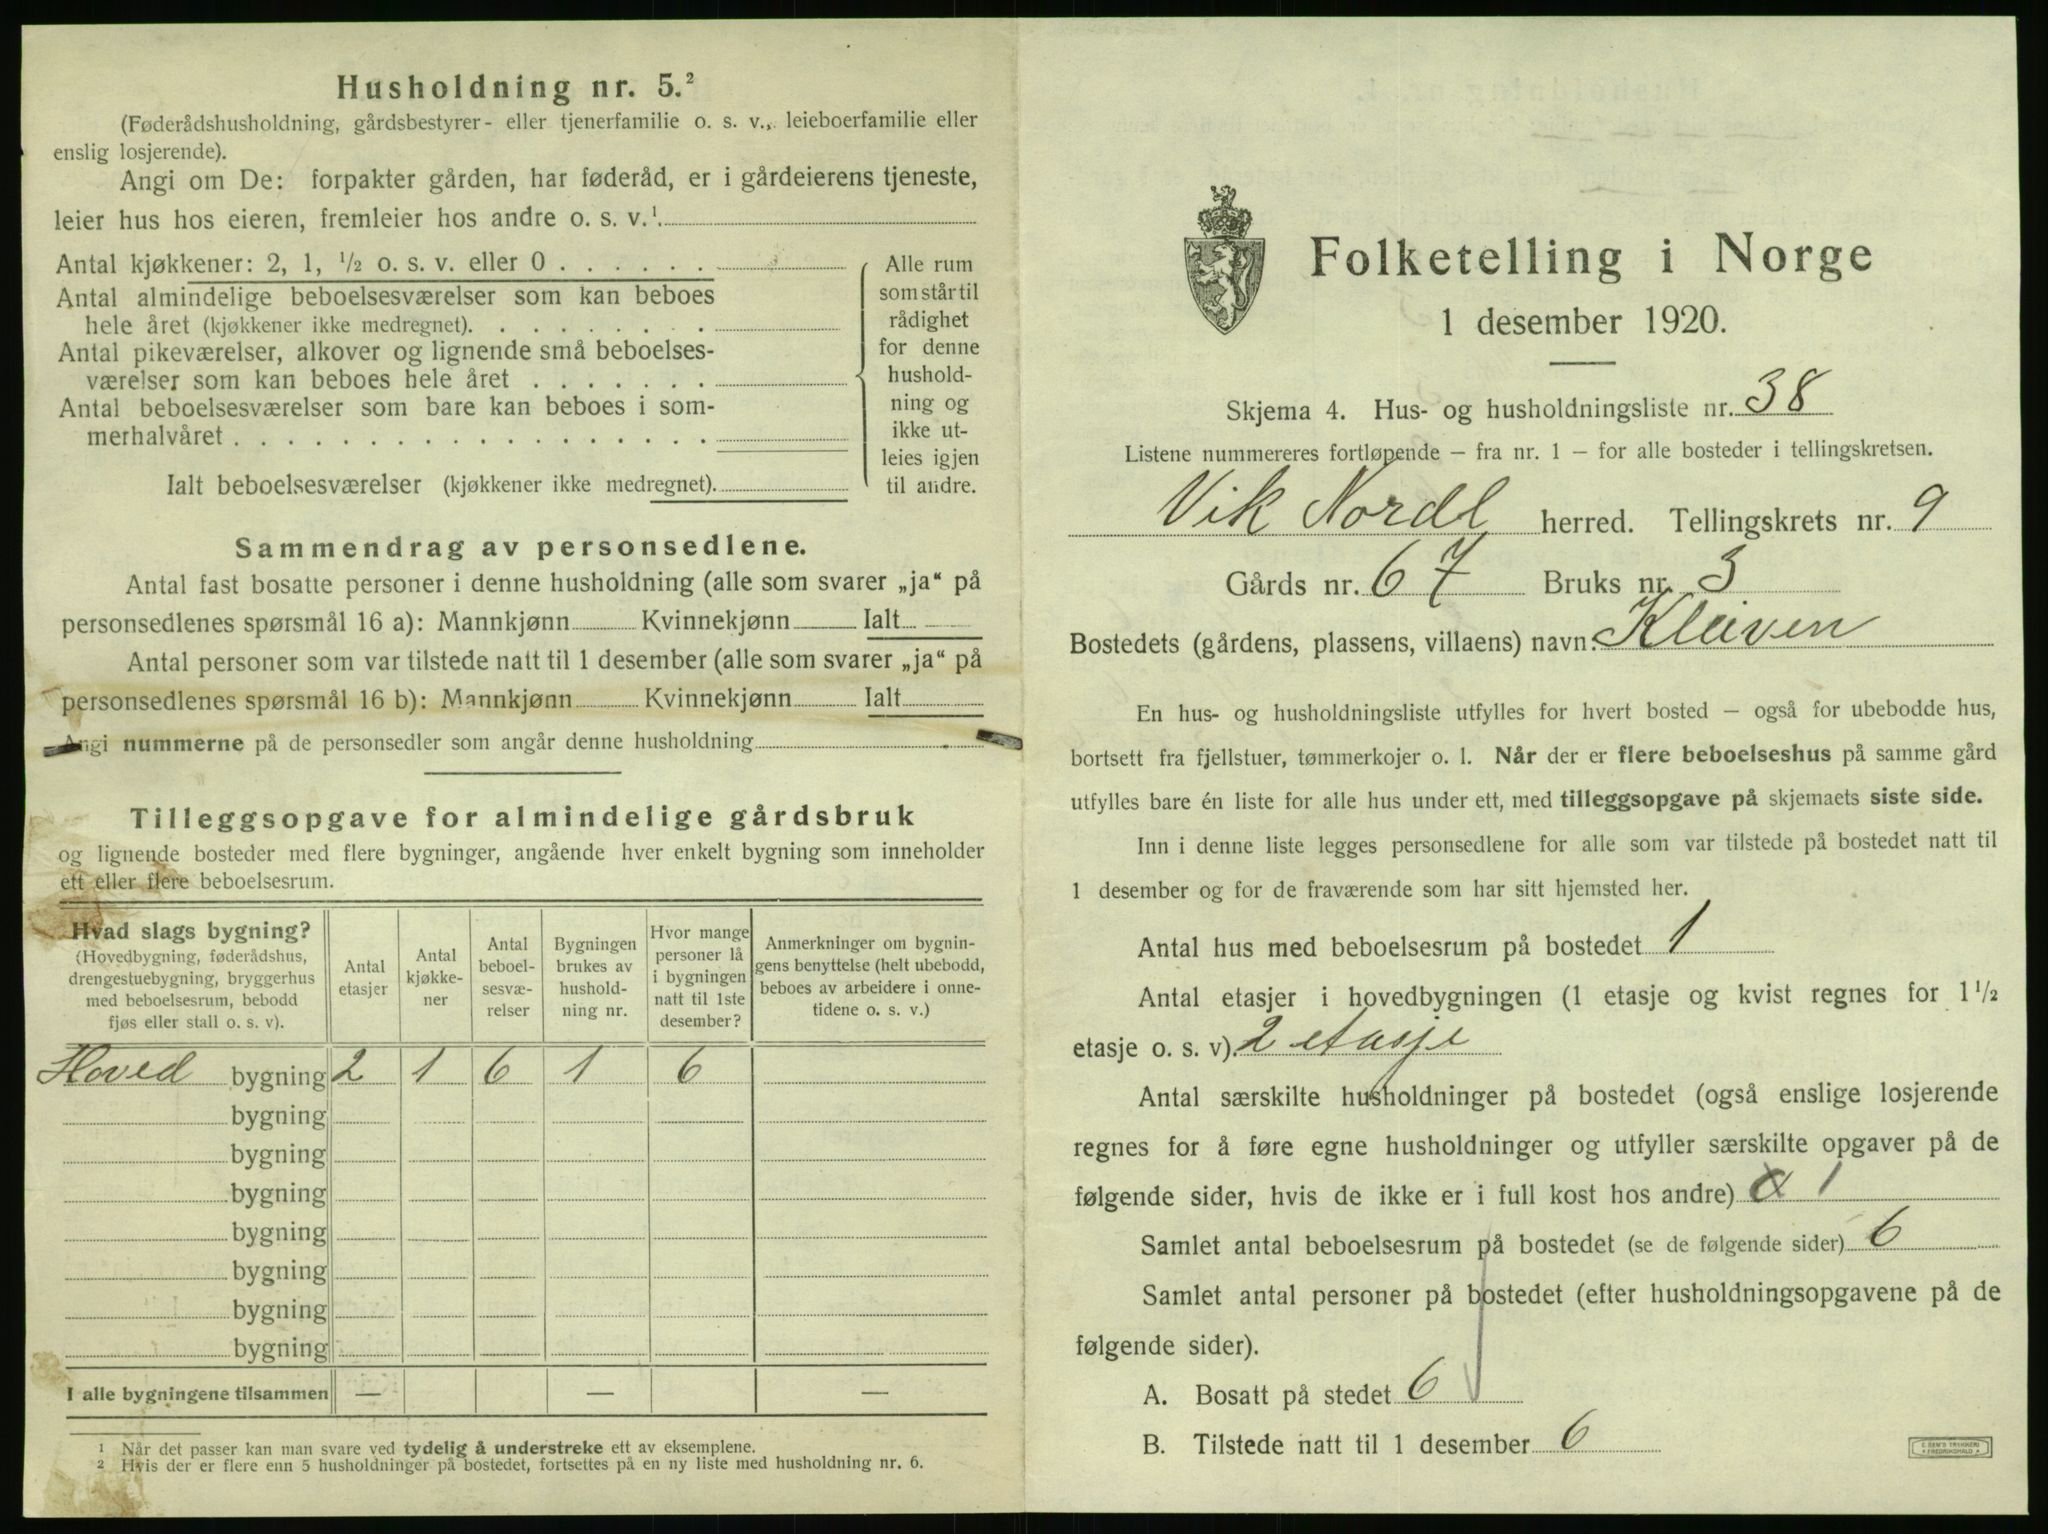 Husholdning nr. 5.²
(Føderådshusholdning, gårdsbestyrer- eller tjenerfamilie o. s. v., leieboerfamilie eller
enslig losjerende).
Angi om De: forpakter gården, har føderåd, er i gårdeierens tjeneste,
leier hus hos eieren, fremleier hos andre o. s. v.¹
Antal kjøkkener: 2, 1, ½ o. s. v. eller 0 . . . . . .
Antal almindelige beboelsesværelser som kan beboes
hele året (kjøkkener ikke medregnet). . . . . . . .
Antal pikeværelser, alkover og lignende små beboelses-
værelser som kan beboes hele året . . . . . . .
Antal beboelsesværelser som bare kan beboes i som-
merhalvåret . . . . . . . . . . . . . . . . . .
Ialt beboelsesværelser (kjøkkener ikke medregnet).
Alle rum
som står til
rådighet
for denne
hushold-
ning og
ikke ut-
leies igjen
til andre.
Sammendrag av personsedlene.
Antal fast bosatte personer i denne husholdning (alle som svarer „ja“ på
personsedlenes spørsmål 16 a): Mannkjønn Kvinnekjønn Ialt
Antal personer som var tilstede natt til 1 desember (alle som svarer „ja“ på
personsedlenes spørsmål 16 b): Mannkjønn Kvinnekjønn Ialt
Angi nummerne på de personsedler som angår denne husholdning
Tilleggsopgave for almindelige gårdsbruk
og lignende bosteder med flere bygninger, angående hver enkelt bygning som inneholder
ett eller flere beboelsesrum.
Hvad slags bygning?
(Hovedbygning, føderådshus,
drengestuebygning, bryggerhus
med beboelsesrum, bebodd
fjøs eller stall o. s. v).
Antal
etasjer
Antal
kjøkke-
ner
Antal
beboel-
sesvæ-
relser
Bygningen
brukes av
hushold-
ning nr.
Hvor mange
personer lå
i bygningen
natt til 1ste
desember?
Anmerkninger om bygnin-
gens benyttelse (helt ubebodd,
beboes av arbeidere i onne-
tidene o. s. v.)
Hoved bygning 2 1 6 1 6
bygning
bygning
bygning
bygning
bygning
bygning
bygning
I alle bygningene tilsammen — — —
¹ Når det passer kan man svare ved tydelig å understreke ett av eksemplene.
² Hvis der er flere enn 5 husholdninger på bostedet, fortsettes på en ny liste med husholdning nr. 6.
Folketelling i Norge
1 desember 1920.
Skjema 4. Hus- og husholdningsliste nr. 38
Listene nummereres fortløpende — fra nr. 1 — for alle bosteder i tellingskretsen.
Vik Nordl herred. Tellingskrets nr. 9
Gårds nr. 67 Bruks nr. 3
Bostedets (gårdens, plassens, villaens) navn: Kleiven
En hus- og husholdningsliste utfylles for hvert bosted — også for ubebodde hus,
bortsett fra fjellstuer, tømmerkojer o. l. Når der er flere beboelseshus på samme gård
utfylles bare én liste for alle hus under ett, med tilleggsopgave på skjemaets siste side.
Inn i denne liste legges personsedlene for alle som var tilstede på bostedet natt til
1 desember og for de fraværende som har sitt hjemsted her.
Antal hus med beboelsesrum på bostedet 1
Antal etasjer i hovedbygningen (1 etasje og kvist regnes for 1½
etasje o. s. v). 2 etasje
Antal særskilte husholdninger på bostedet (også enslige losjerende
regnes for å føre egne husholdninger og utfyller særskilte opgaver på de
følgende sider, hvis de ikke er i full kost hos andre) 1
Samlet antal beboelsesrum på bostedet (se de følgende sider) 6
Samlet antal personer på bostedet (efter husholdningsopgavene på de
følgende sider).
A. Bosatt på stedet 6
B. Tilstede natt til 1 desember 6